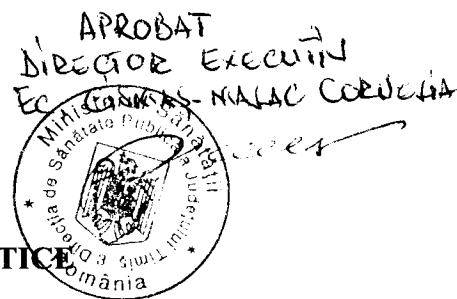 APROBAT
DIRECTOR EXECUTIV
EC. MALAC CORNELIA
Ministerul Sănătăţii
Direcţia de Sănătate Publică a Judeţului Timiş
România
TICE